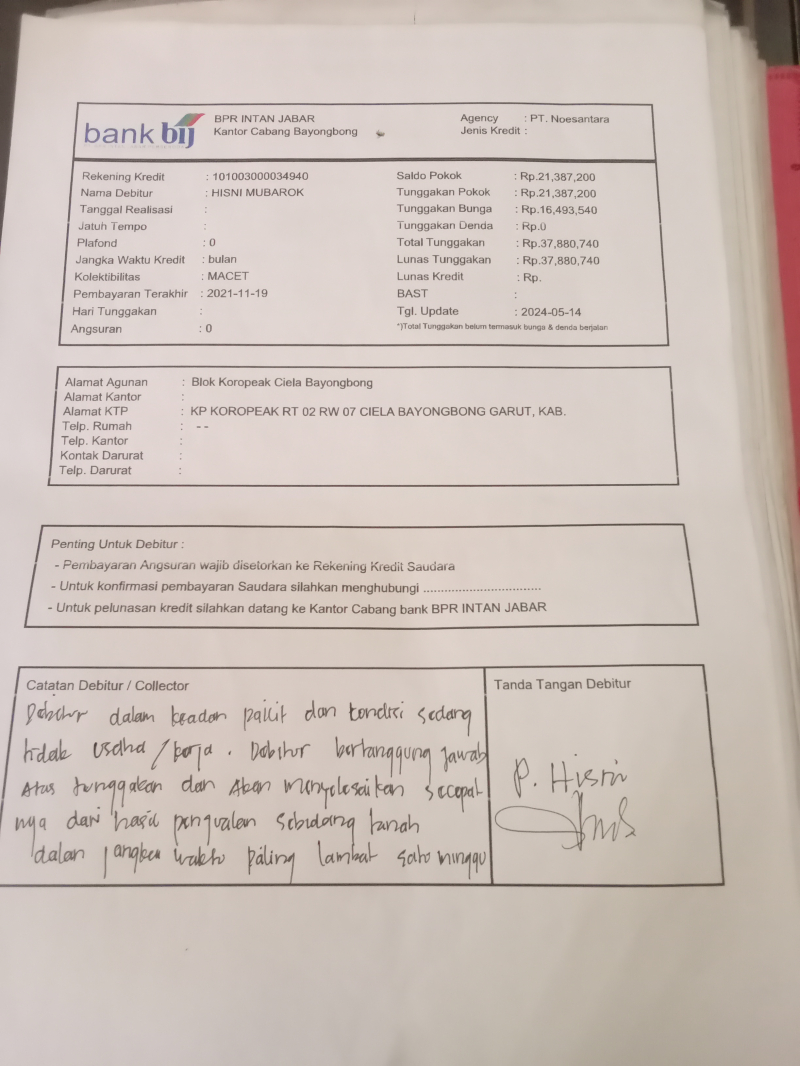 bank bij
BPR INTAN JABAR
Kantor Cabang Bayongbong
Agency : PT. Noesantara
Jenis Kredit :
Rekening Kredit : 101003000034940
Nama Debitur : HISNI MUBAROK
Tanggal Realisasi :
Jatuh Tempo :
Plafond : 0
Jangka Waktu Kredit : bulan
Kolektibilitas : MACET
Pembayaran Terakhir : 2021-11-19
Hari Tunggakan :
Angsuran : 0
Saldo Pokok : Rp.21,387,200
Tunggakan Pokok : Rp.21,387,200
Tunggakan Bunga : Rp.16,493,540
Tunggakan Denda : Rp.0
Total Tunggakan : Rp.37,880,740
Lunas Tunggakan : Rp.37,880,740
Lunas Kredit : Rp.
BAST :
Tgl. Update : 2024-05-14
*)Total Tunggakan belum termasuk bunga & denda berjalan
Alamat Agunan : Blok Koropeak Ciela Bayongbong
Alamat Kantor :
Alamat KTP : KP KOROPEAK RT 02 RW 07 CIELA BAYONGBONG GARUT, KAB.
Telp. Rumah : - -
Telp. Kantor :
Kontak Darurat :
Telp. Darurat :
Penting Untuk Debitur :
- Pembayaran Angsuran wajib disetorkan ke Rekening Kredit Saudara
- Untuk konfirmasi pembayaran Saudara silahkan menghubungi ................................
- Untuk pelunasan kredit silahkan datang ke Kantor Cabang bank BPR INTAN JABAR
Catatan Debitur / Collector
Debitur dalam keadan pailit dan kondisi sedang
tidak usaha/kerja. Debitur bertanggung jawab
Atas tunggakan dan Akan menyelesaikan secepat
nya dari hasil penjualan sebidang tanah
dalam jangka waktu paling lambat satu minggu
Tanda Tangan Debitur
P. Hisni